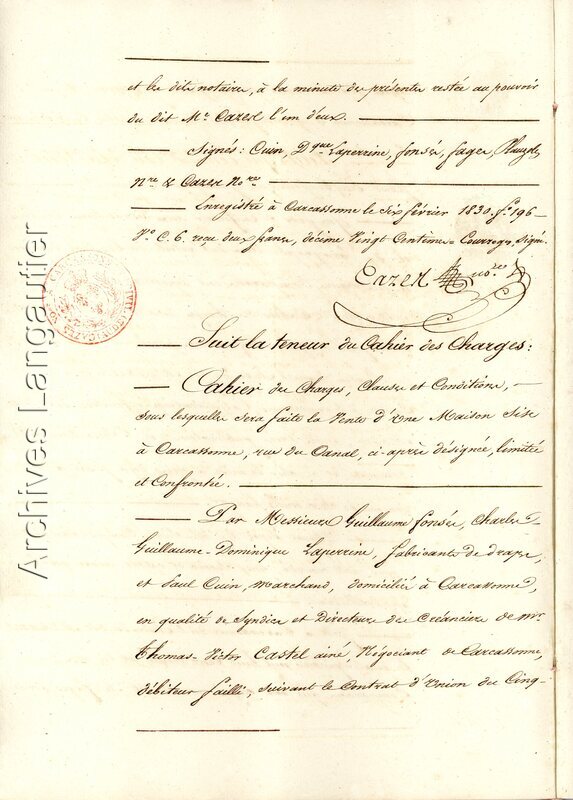 et les dits notaires, à la minute des présentes restée au pouvoir
du dit Me. Cazes l'un d'eux.
Signés: Ouin, Dque Laperrine, fonsés, fages,
Nre & Cazes Nore.
Enregistré à Carcassonne le six février 1830. fo. 196
Vo. C. 6. reçu deux francs, décime Vingt Centimes. Courrèges, Signé.
Cazes
Suit la teneur du Cahier des Charges:
Cahier des Charges, Clauses et Conditions,
sous lesquelles sera faite la Vente d'Une Maison Sise
à Carcassonne, rue du Canal, ci-après désignée, limitée
et Confrontée.
Par Messieurs Guillaume fonsés, Charles
Guillaume-Dominique Laperrine, fabricants de draps,
et Paul Ouin, Marchand, domiciliés à Carcassonne,
en qualité de Syndics et Directeurs des Créanciers de Mr.
Thomas-Victor Castel ainé, Négociant de Carcassonne,
débiteur failli, suivant le Contrat d'Union du Cinq
Archives Langautier